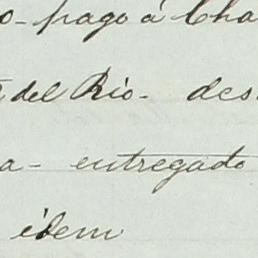 o- pago á Cha
del Rio- des
a- entregado
idem